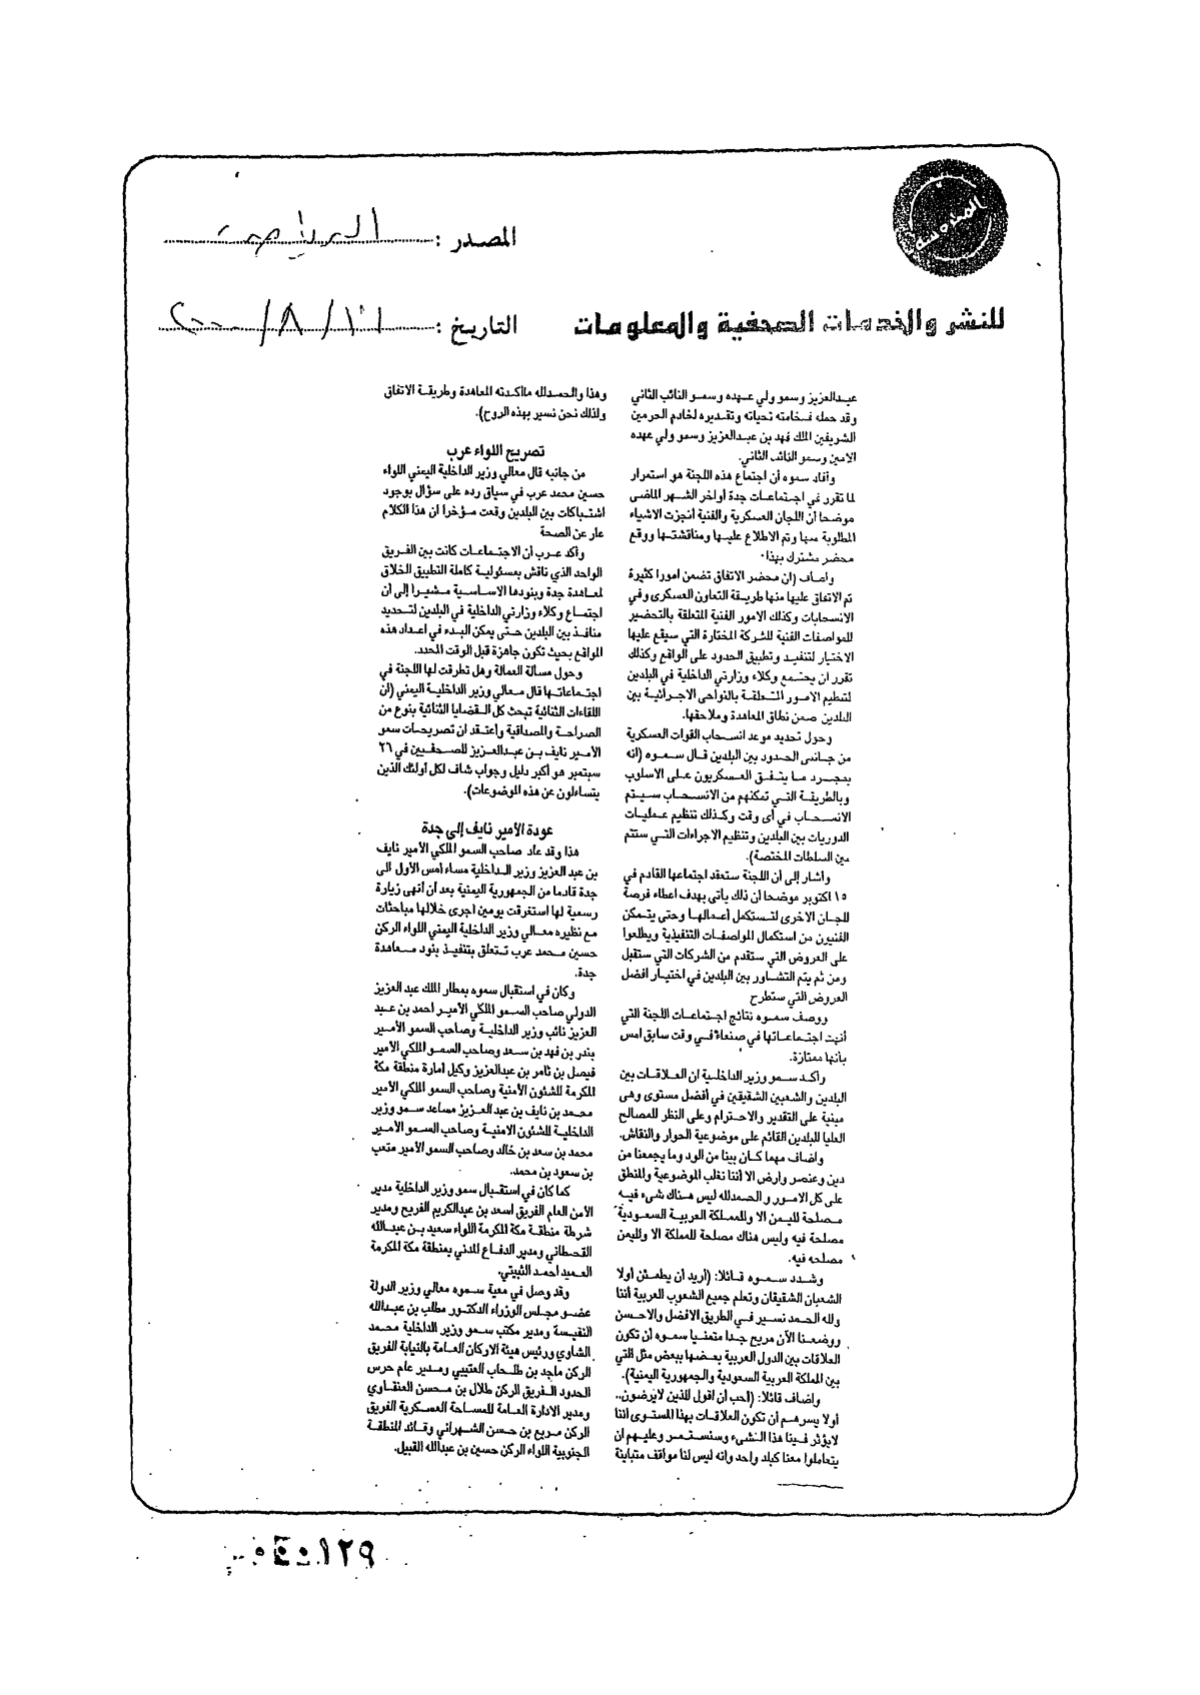 المصدر : الرياض
للنشر والخدمات الصحفية والمعلومات
التاريخ :
عبدالعزيز وسمو ولي عهده وسمو النائب الثاني
وقد حمله فخامته تحياته وتقديره لخادم الحرمين
الشريفين الملك فهد بن عبدالعزيز وسمو ولي عهده
الامين وسمو النائب الثاني.
وأفاد سموه أن اجتماع هذه اللجنة هو استمرار
لما تقرر في اجتماعات جدة أواخر الشهر الماضي
موضحا أن اللجان العسكرية والفنية أنجزت الاشياء
المطلوبة منها وتم الاطلاع عليها ومناقشتها ووقع
محضر مشترك بهذا.
وأضاف (ان محضر الاتفاق تضمن امورا كثيرة
تم الاتفاق عليها منها طريقة التعاون العسكرى وفي
الانسحابات وكذلك الامور الفنية المتعلقة بالتحضير
للمواصفات الفنية للشركة المختارة التي سيقع عليها
الاختيار لتنفيذ وتطبيق الحدود على الواقع وكذلك
تقرر ان يجتمع وكلاء وزارتي الداخلية في البلدين
لتنظيم الامور المتعلقة بالنواحى الاجرائية بين
البلدين ضمن نطاق المعاهدة وملاحقها.
وحول تحديد موعد انسحاب القوات العسكرية
من جانبى الحدود بين البلدين قال سموه (انه
بمجرد ما يتفق العسكريون على الاسلوب
وبالطريقة التي تمكنهم من الانسحاب سيتم
الانسحاب في أى وقت وكذلك تنظيم عمليات
الدوريات بين البلدين وتنظيم الاجراءات التي ستتم
بين السلطات المختصة).
وأشار إلى أن اللجنة ستعقد اجتماعها القادم في
١٥ اكتوبر موضحا أن ذلك يأتى بهدف اعطاء فرصة
للجان الاخرى لتستكمل أعمالها وحتى يتمكن
الفنيون من استكمال المواصفات التنفيذية ويطلعوا
على العروض التي ستقدم من الشركات التي ستقبل
ومن ثم يتم التشاور بين البلدين في اختيار افضل
العروض التي ستطرح
ووصف سموه نتائج اجتماعات اللجنة التي
أنهت اجتماعاتها في صنعاء في وقت سابق امس
بانها ممتازة.
وأكد سمو وزير الداخلية ان العلاقات بين
البلدين والشعبين الشقيقين في أفضل مستوى وهى
مبنية على التقدير والاحترام وعلى النظر للمصالح
العليا للبلدين القائم على موضوعية الحوار والنقاش.
واضاف مهما كان بيننا من الود وما يجمعنا من
دين وعنصر وارض الا أننا نغلب الموضوعية والمنطق
على كل الامور والحمدلله ليس هناك شىء فيه
مصلحة لليمن الا وللمملكة العربية السعودية
مصلحة فيه وليس هناك مصلحة للمملكة الا ولليمن
مصلحه فيه.
وشدد سموه قائلا: (أريد أن يطمئن أولا
الشعبان الشقيقان وتعلم جميع الشعوب العربية أننا
ولله الحمد نسير في الطريق الافضل والاحسن
ووضعنا الآن مريح جدا متمنيا سموه أن تكون
العلاقات بين الدول العربية بعضها ببعض مثل التي
بين المملكة العربية السعودية والجمهورية اليمنية).
واضاف قائلا: (أحب ان اقول للذين لايرضون..
أولا يسرهم أن تكون العلاقات بهذا المستوى أننا
لايؤثر فينا هذا الشىء وسنستمر وعليهم ان
يتعاملوا معنا كبلد واحد وانه ليس لنا مواقف متباينة
وهذا والحمدلله مااكدته المعاهدة وطريقة الاتفاق
ولذلك نحن نسير بهذه الروح).
تصريح اللواء عرب
من جانبه قال معالي وزير الداخلية اليمني اللواء
حسين محمد عرب في سياق رده على سؤال بوجود
اشتباكات بين البلدين وقعت مؤخرا ان هذا الكلام
عار عن الصحة
وأكد عرب أن الاجتماعات كانت بين الفريق
الواحد الذي ناقش بمسئولية كاملة التطبيق الخلاق
لمعاهدة جدة وبنودها الاساسية مشيرا إلى أن
اجتماع وكلاء وزارتي الداخلية في البلدين لتحديد
منافذ بين البلدين حتى يمكن البدء في اعداد هذه
المواقع بحيث تكون جاهزة قبل الوقت المحدد.
وحول مسألة العمالة وهل تطرقت لها اللجنة في
اجتماعاتها قال معالي وزير الداخلية اليمني (أن
اللقاءات الثنائية تبحث كل القضايا الثنائية بنوع من
الصراحة والمصداقية وأعتقد ان تصريحات سمو
الأمير نايف بن عبدالعزيز للصحفيين في ٢٦
سبتمبر هو أكبر دليل وجواب شاف لكل أولئك الذين
يتساءلون عن هذه الموضوعات).
عودة الأمير نايف إلى جدة
هذا وقد عاد صاحب السمو الملكي الأمير نايف
بن عبد العزيز وزير الداخلية مساء امس الأول الى
جدة قادما من الجمهورية اليمنية بعد أن أنهى زيارة
رسمية لها استغرقت يومين اجرى خلالها مباحثات
مع نظيره معالي وزير الداخلية اليمني اللواء الركن
حسين محمد عرب تتعلق بتنفيذ بنود معاهدة
جدة.
وكان في استقبال سموه بمطار الملك عبد العزيز
الدولي صاحب السمو الملكي الأمير احمد بن عبد
العزيز نائب وزير الداخلية وصاحب السمو الأمير
بندر بن فهد بن سعد وصاحب السمو الملكي الامير
فيصل بن ثامر بن عبدالعزيز وكيل أمارة منطقة مكة
المكرمة للشئون الأمنية وصاحب السمو الملكي الأمير
محمد بن نايف بن عبد العزيز مساعد سمو وزير
الداخلية للشئون الامنية وصاحب السمو الأمير
محمد بن سعد بن خالد وصاحب السمو الأمير متعب
بن سعود بن محمد.
كما كان في استقبال سمو وزير الداخلية مدير
الأمن العام الفريق اسعد بن عبدالكريم الفريح ومدير
شرطة منطقة مكة المكرمة اللواء سعيد بن عبدالله
القحطاني ومدير الدفاع المدني بمنطقة مكة المكرمة
العميد احمد الثبيتي.
وقد وصل في معية سموه معالي وزير الدولة
عضو مجلس الوزراء الدكتور مطلب بن عبدالله
النفيسة ومدير مكتب سمو وزير الداخلية محمد
الشاوي ورئيس هيئة الاركان العامة بالنيابة الفريق
الركن ماجد بن طلحاب العتيبي ومدير عام حرس
الحدود الفريق الركن طلال بن محسن العنقاوي
ومدير الادارة العامة للمساحة العسكرية الفريق
الركن مريع بن حسن الشهراني وقائد المنطقة
الجنوبية اللواء الركن حسين بن عبدالله القبيل.